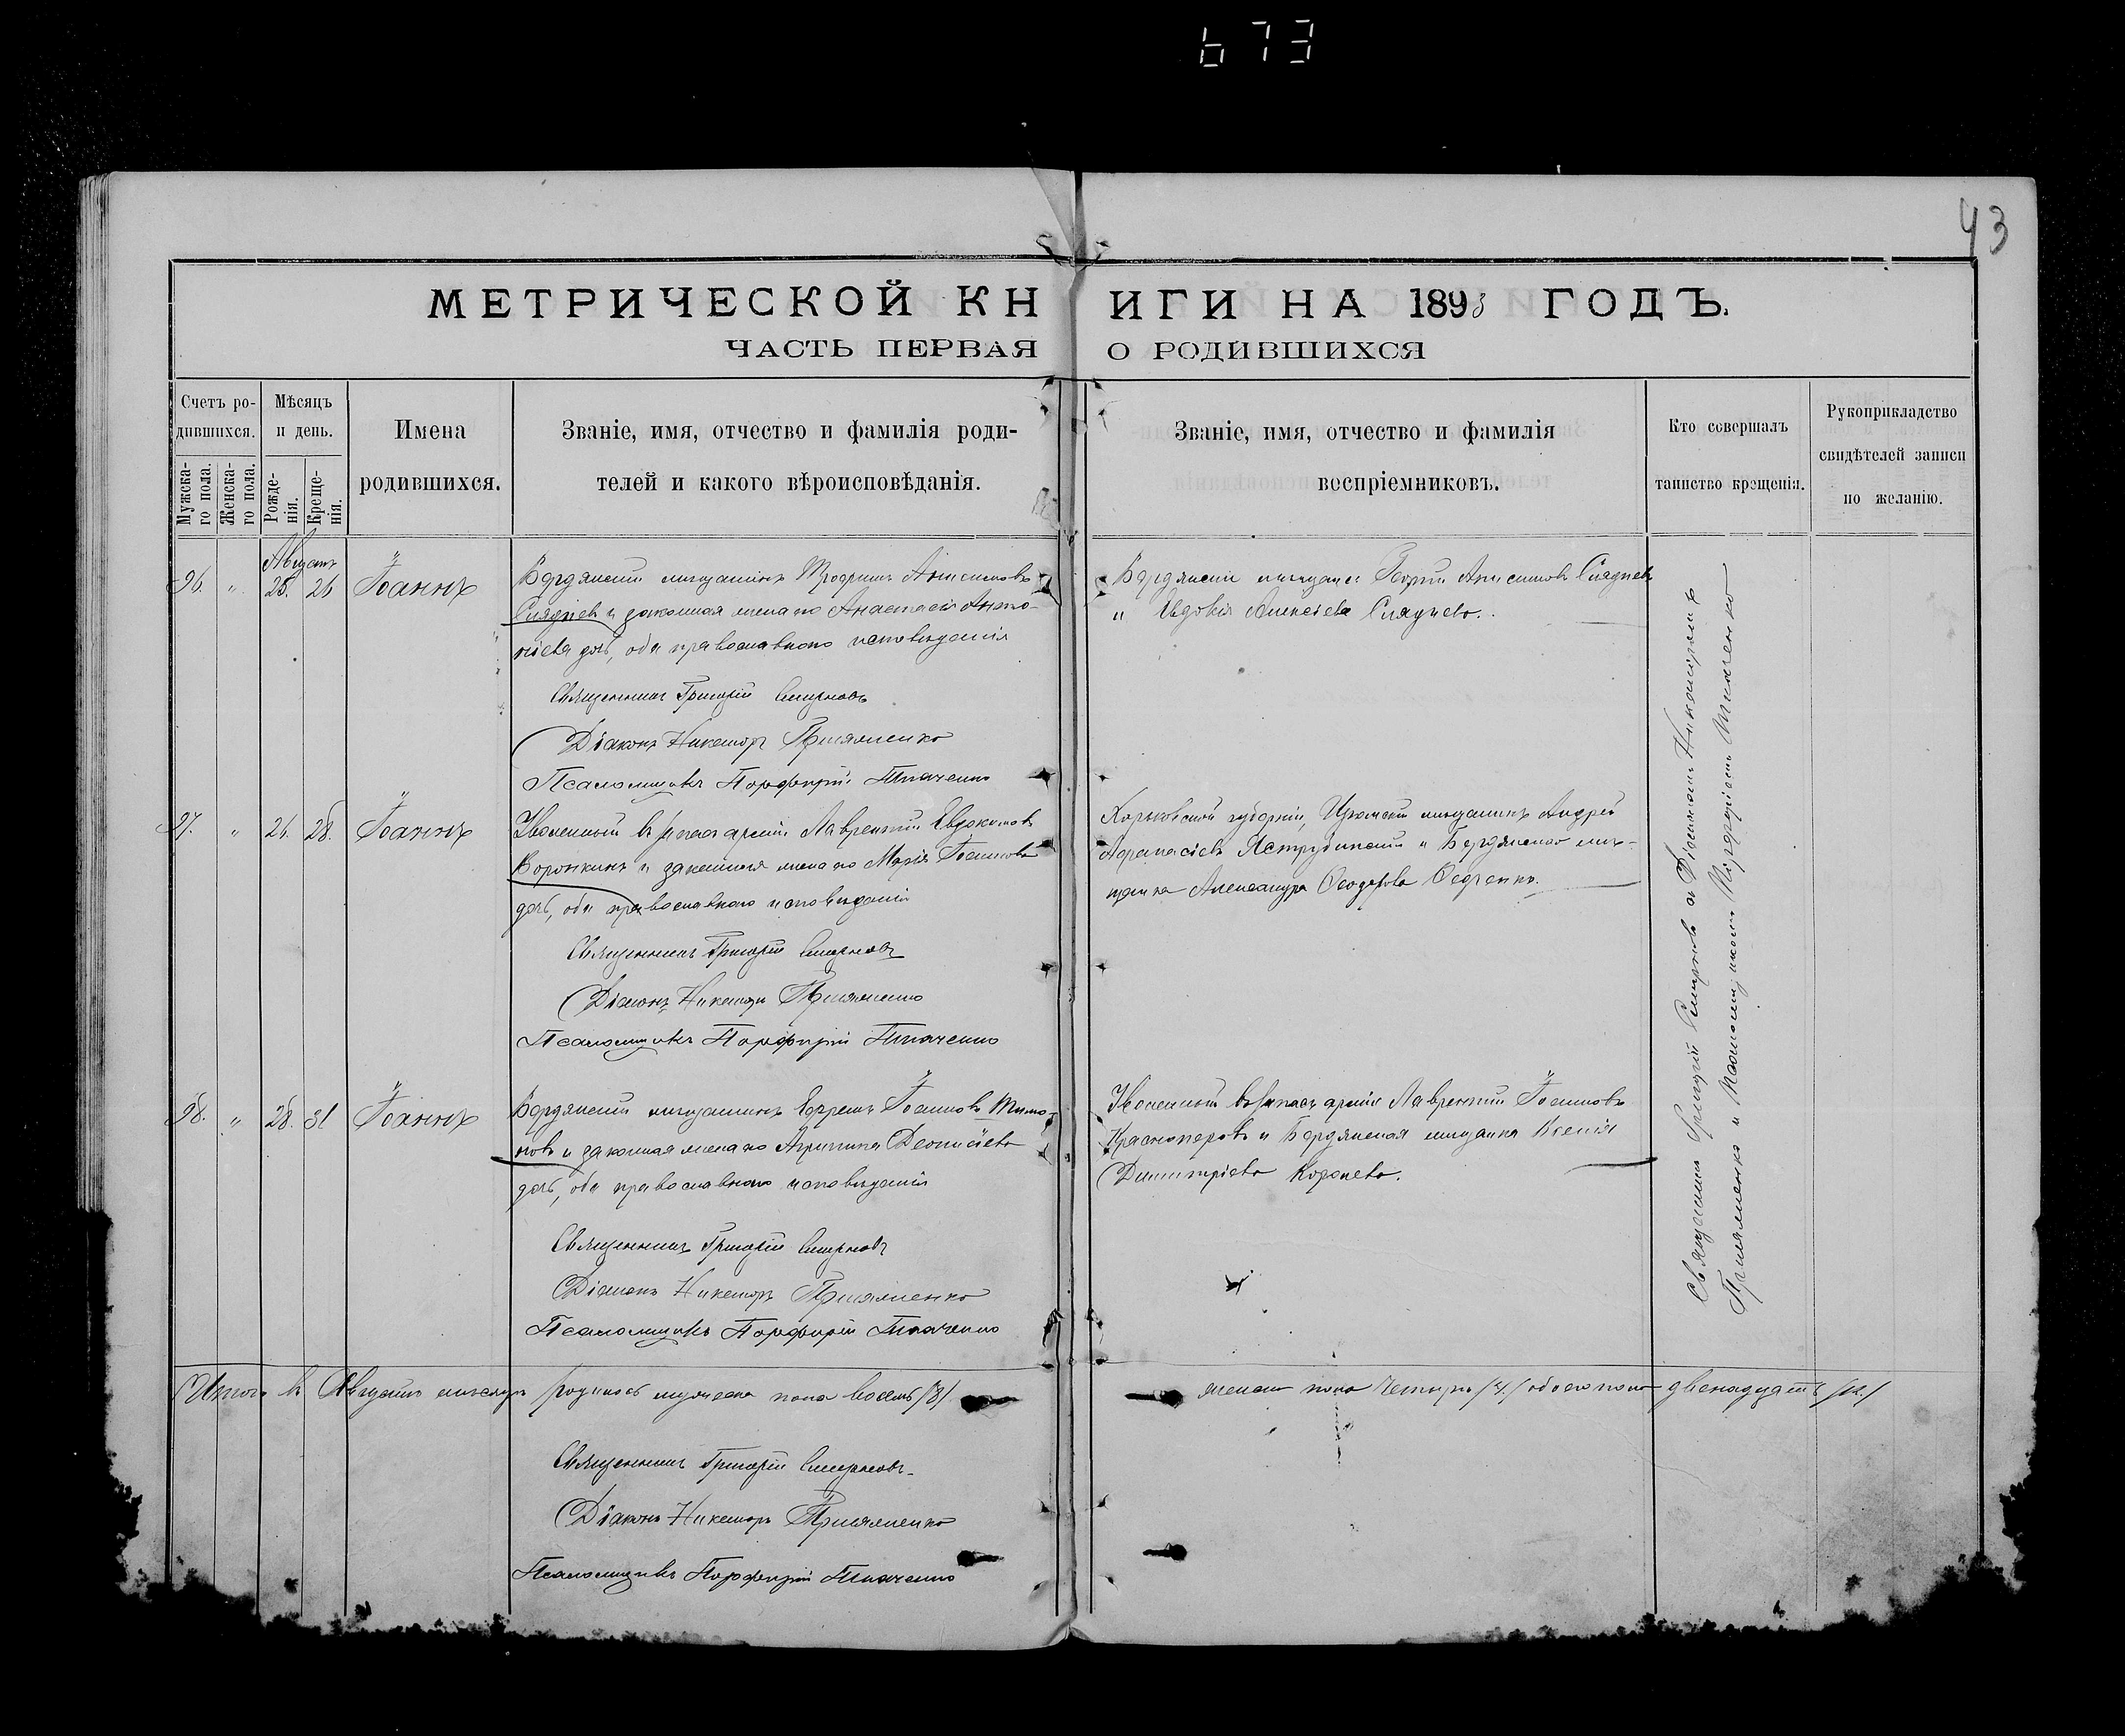 673
43
МЕТРИЧЕСКОЙ КНИГИ НА 1893 ГОДЪ.
ЧАСТЬ ПЕРВАЯ О РОДИВШИХСЯ
Счетъ родившихся.
Мужска-
го пола.
Женска-
го пола.
Мѣсяцъ
и день.
Рожде-
нія.
Креще-
нія.
Имена
родившихся.
Званіе, имя, отчество и фамилія роди-
телей и какого вѣроисповѣданія.
Званіе, имя, отчество и фамилія
воспріемниковъ.
Кто совершалъ
таинство крещенія.
Рукоприкладство
свидѣтелей записи
по желанію.
Августъ
96. " 25. 26 Іоаннъ
Бердянскій мѣщанинъ Трофимъ Анисимовъ
и законная жена его Анастасія Анто-
ніева дочь, оба православнаго исповѣданія
Бердянскіе мѣщане Анисимовъ
" Евдокія Алексѣева
Священникъ Григорій Смирновъ
Діаконъ Никаноръ
Псаломщикъ Порфирій Ткаченко
97. " 26. 28. Іоаннъ
Уволенный въ запасъ арміи Лаврентій Евдокимовъ
Воронкинъ и законная жена его Марія Іоаннова
дочь, оба православнаго исповѣданія
Харьковской губерніи, Изюмскій мѣщанинъ Андрей
Афанасіевъ и Бердянская мѣ-
щанка Александра Ѳеодорова
Священникъ Григорій Смирновъ
Діаконъ Никаноръ
Псаломщикъ Порфирій Ткаченко
98. " 28. 31 Іоаннъ
Бердянскій мѣщанинъ Ефремъ Іоанновъ Тимо-
новъ и законная жена его Агрипина Деонисіева
дочь, оба православнаго исповѣданія
Уволенный въ запасъ арміи Лаврентій Іоанновъ
Красноперовъ и Бердянская мѣщанка Ксенія
Димитріева
Священникъ Григорій Смирновъ
Діаконъ Никаноръ
Псаломщикъ Порфирій Ткаченко
Священникъ Григорій Смирновъ съ Діакономъ Никаноромъ
и Псаломщикомъ Порфиріемъ Ткаченко
Итого въ Августѣ мѣсяцѣ родилось мужеска пола восемь /8/ женска пола четыре /4/ обоего пола двенадцать /12/
Священникъ Григорій Смирновъ
Діаконъ Никаноръ
Псаломщикъ Порфирій Ткаченко